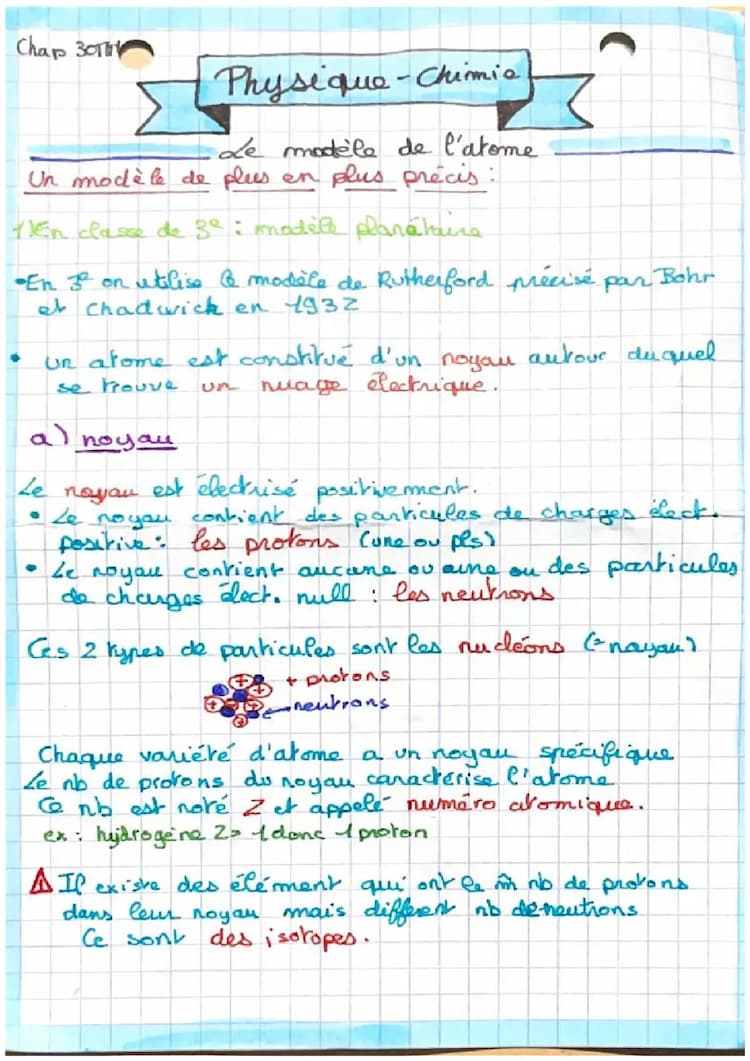 Chap
Physique-Chimie
Le modèle de l'atome
Un modèle de plus en plus précis :
1) En classe de 3e : modèle planétaire
•En 3e on utilise le modèle de Rutherford précisé par Bohr
et Chadwick en 1932
• un atome est constitué d'un noyau autour duquel
se trouve un nuage électrique.
a) noyau
Le noyau est électrisé positivement.
• Le noyau contient des particules de charges élect.
positive : les protons (une ou pls)
• Le noyau contient aucune ou une ou des particules
de charges élect. null : les neutrons
Ces 2 types de particules sont les nucléons (=noyau)
+ protons
neutrons
Chaque variété d'atome a un noyau spécifique
Le nb de protons du noyau caractérise l'atome
Ce nb est noté Z et appelé numéro atomique.
ex : hydrogène Z= 1 donc 1 proton
Il existe des élément qui ont le m̂ nb de protons
dans leur noyau mais different nb de neutrons
Ce sont des isotopes.